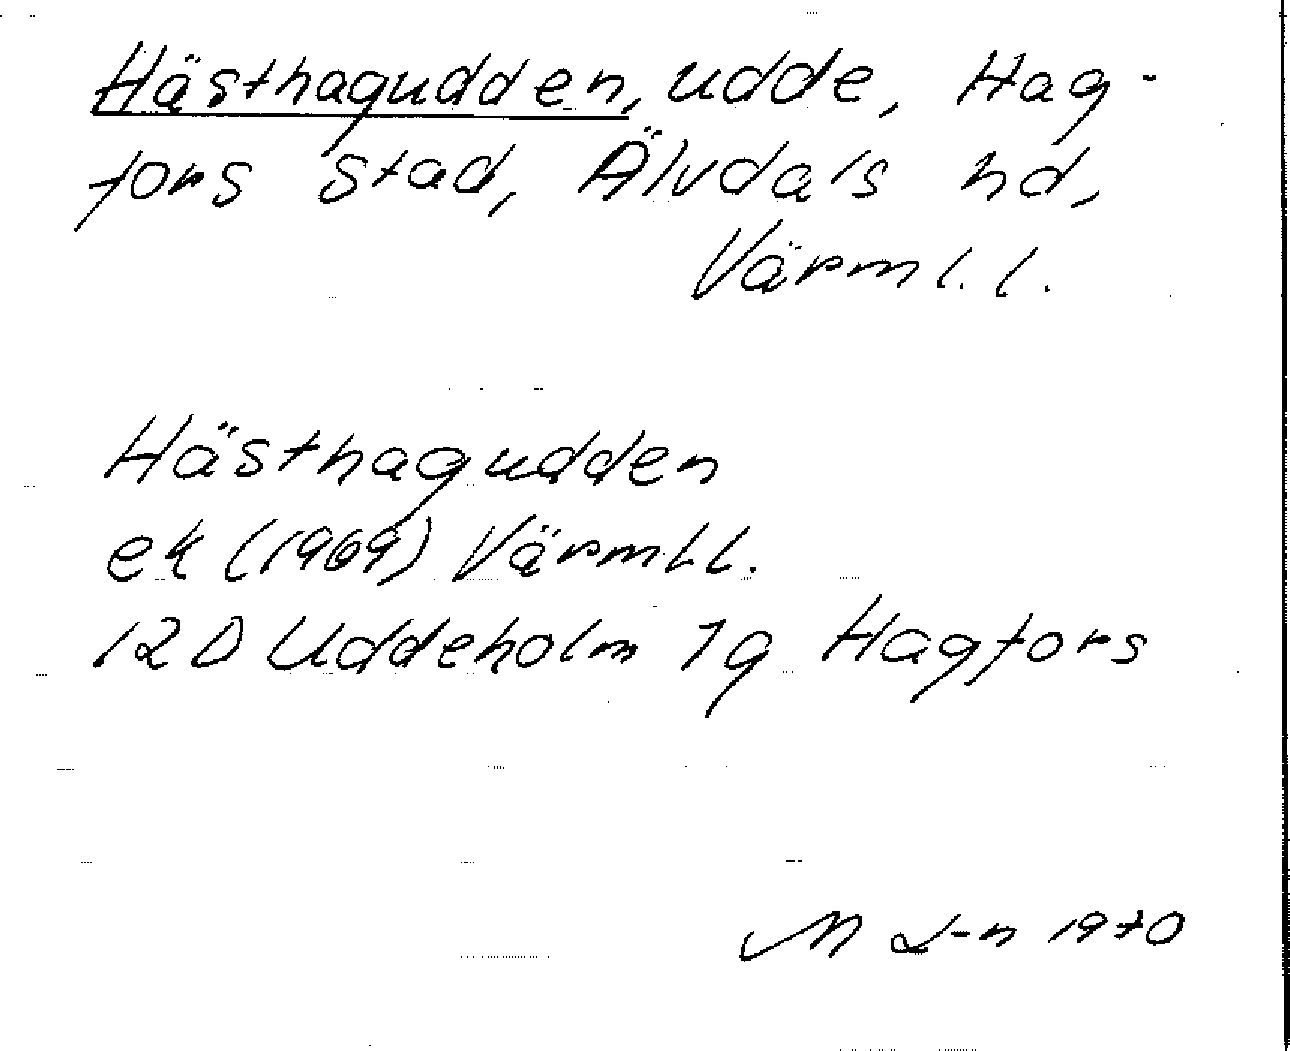 Hästhagudden, udde, Hag-
fors stad, Älvdals hd,
Värml. l.
Hästhagudden
ek (1969) Värml.l.
12D Uddeholm 7g Hagfors
M L-n 1970